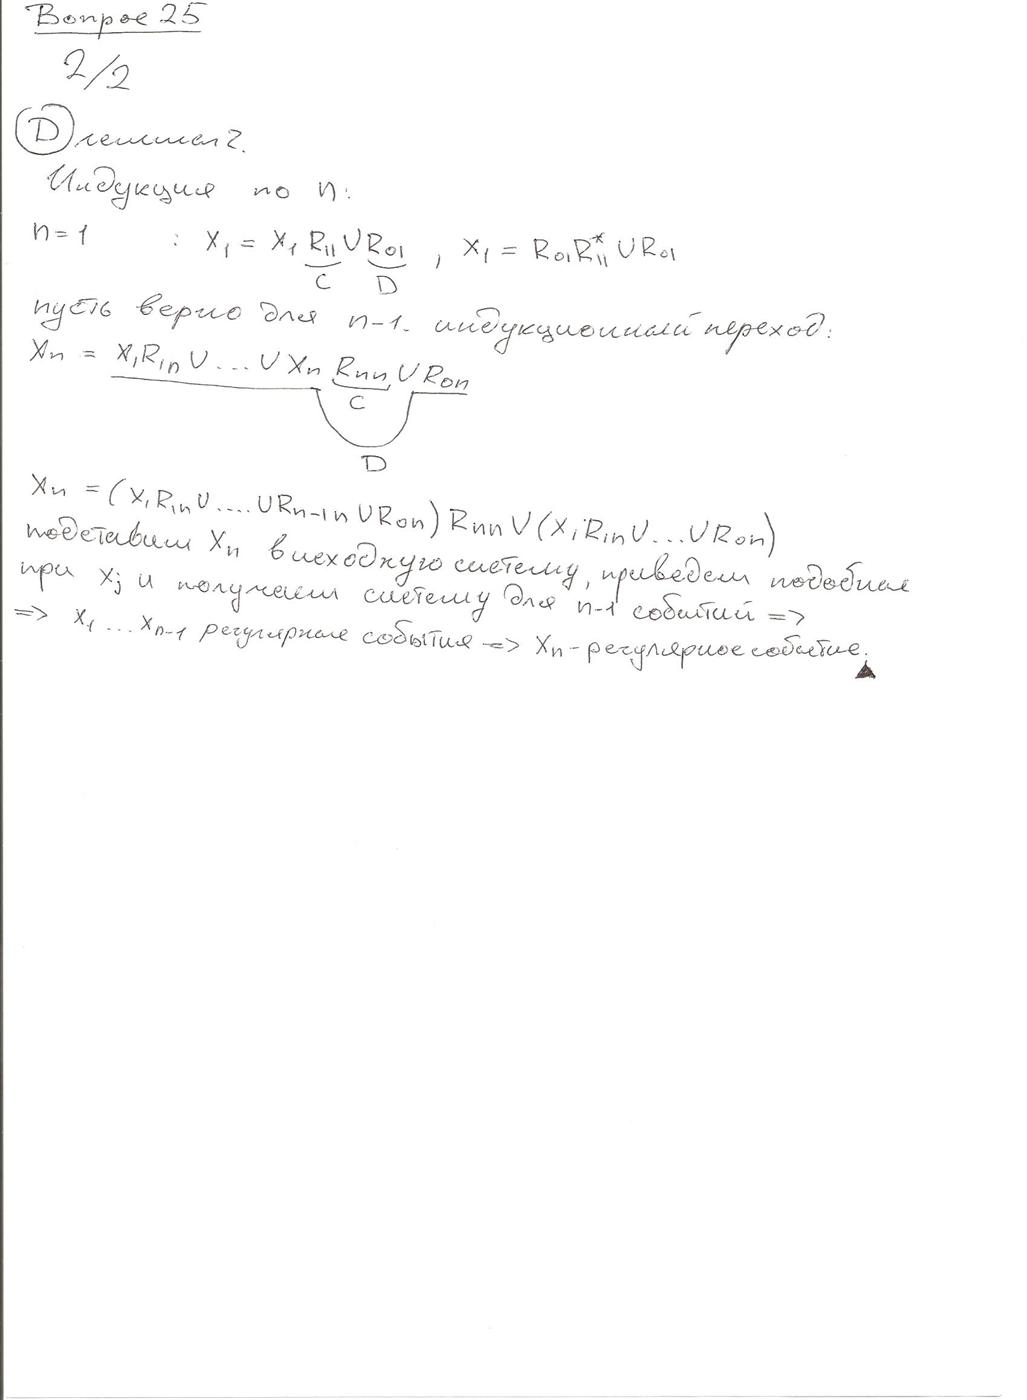 Вопрос 25
2/2
Ⓓ леммы 2.
Индукция по n:
n=1 : X₁ = X₁ R₁₁ ∪ R₀₁ , X₁ = R₀₁R₁₁* ∪ R₀₁
C D
пусть верно для n-1. индукционный переход:
Xn = X₁R₁n ∪ ... ∪ Xn Rnn ∪ R₀n
C
D
Xn = (X₁R₁n ∪ .... ∪ Rn-1n ∪ R₀n) Rnn ∪ (X₁R₁n ∪ ... ∪ R₀n)
подставим Xn в исходную систему, приведем подобные
при Xj и получаем систему для n-1 событий =>
=> X₁ ... Xn-1 регулярные события => Xn - регулярное событие.
▲